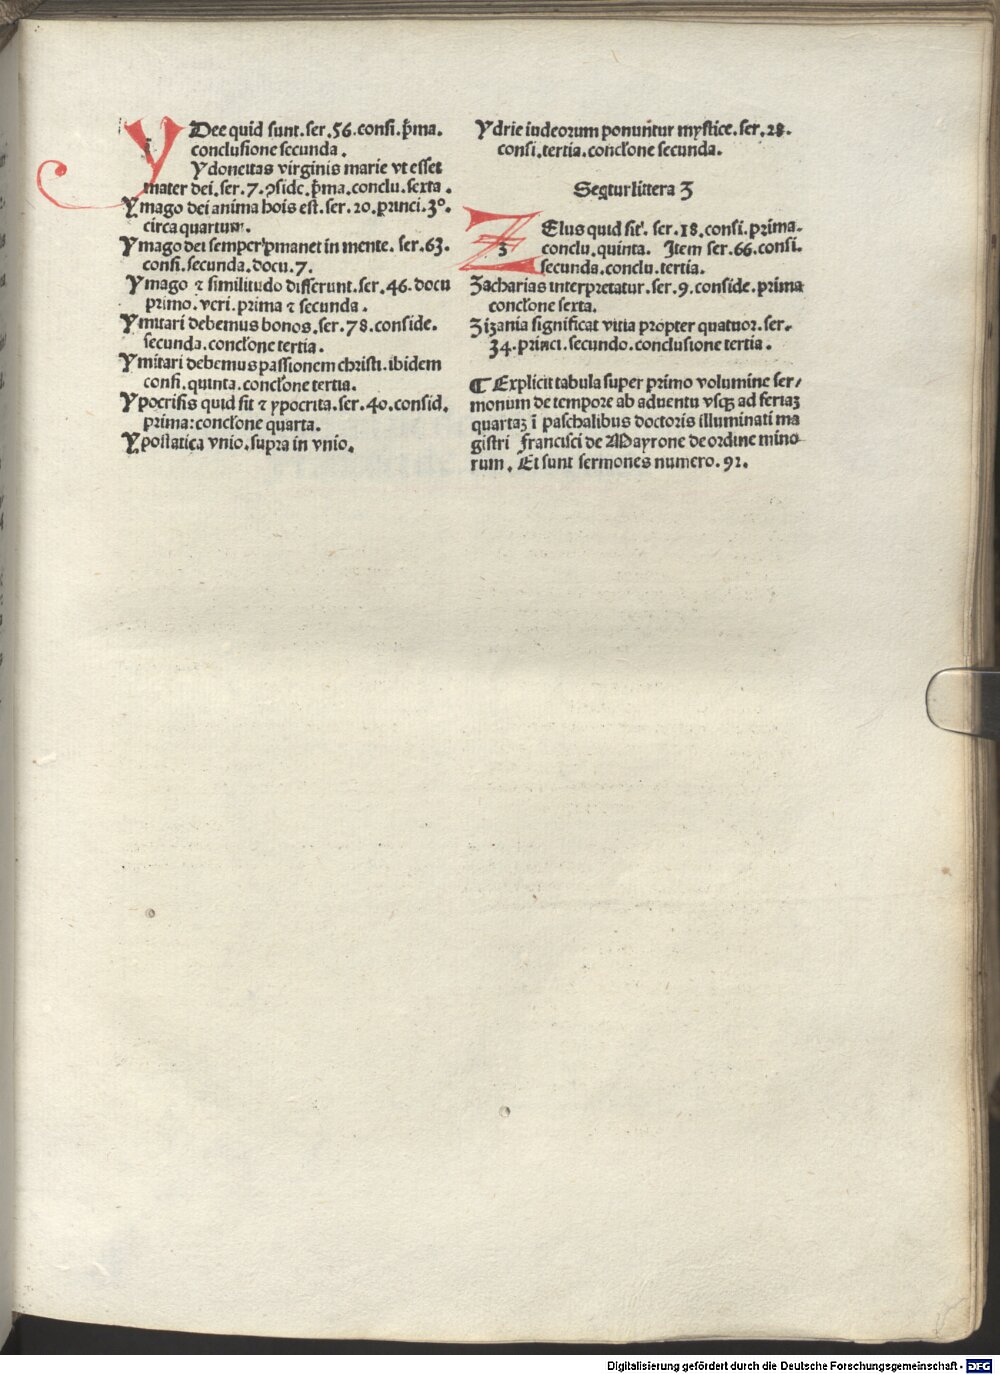 YDee quid sunt. ser. 56. consi. p̃ma.
conclusione secunda.
Ydoneitas virginis marie vt esset
mater dei. ser. 7. ꝯside. p̃ma. conclu. sexta.
Ymago dei anima hoīs est. ser. 20. princi. 3º.
circa quartum.
Ymago dei semper ꝑmanet in mente. ser. 63.
consi. secunda. docu. 7.
Ymago ⁊ similitudo differunt. ser. 46. docu
primo. veri. prima ⁊ secunda.
Ymitari debemus bonos. ser. 78. conside.
secunda. concl'one tertia.
Ymitari debemus passionem christi. ibidem
consi. quinta. concl'one tertia.
Ypocrisis quid sit ⁊ ypocrita. ser. 40. consid.
prima: concl'one quarta.
Ypostatica vnio. supra in vnio.
Ydrie iudeorum ponuntur mystice. ser. 28.
consi. tertia. concl'one secunda.
Seq̃tur littera Z
ZElus quid sit. ser. 18. consi. prima.
conclu. quinta. Item ser. 66. consi.
secunda. conclu. tertia.
Zacharias interpretatur. ser. 9. conside. prima
concl'one sexta.
Zizania significat vitia propter quatuor. ser.
34. princi. secundo. conclusione tertia.
¶ Explicit tabula super primo volumine ser/
monum de tempore ab aduentu vsqꝫ ad feriaꝫ
quartaꝫ ī paschalibus doctoris illuminati ma
gistri francisci de Mayrone de ordine mino
rum. Et sunt sermones numero. 92.
Digitalisierung gefördert durch die Deutsche Forschungsgemeinschaft - DFG